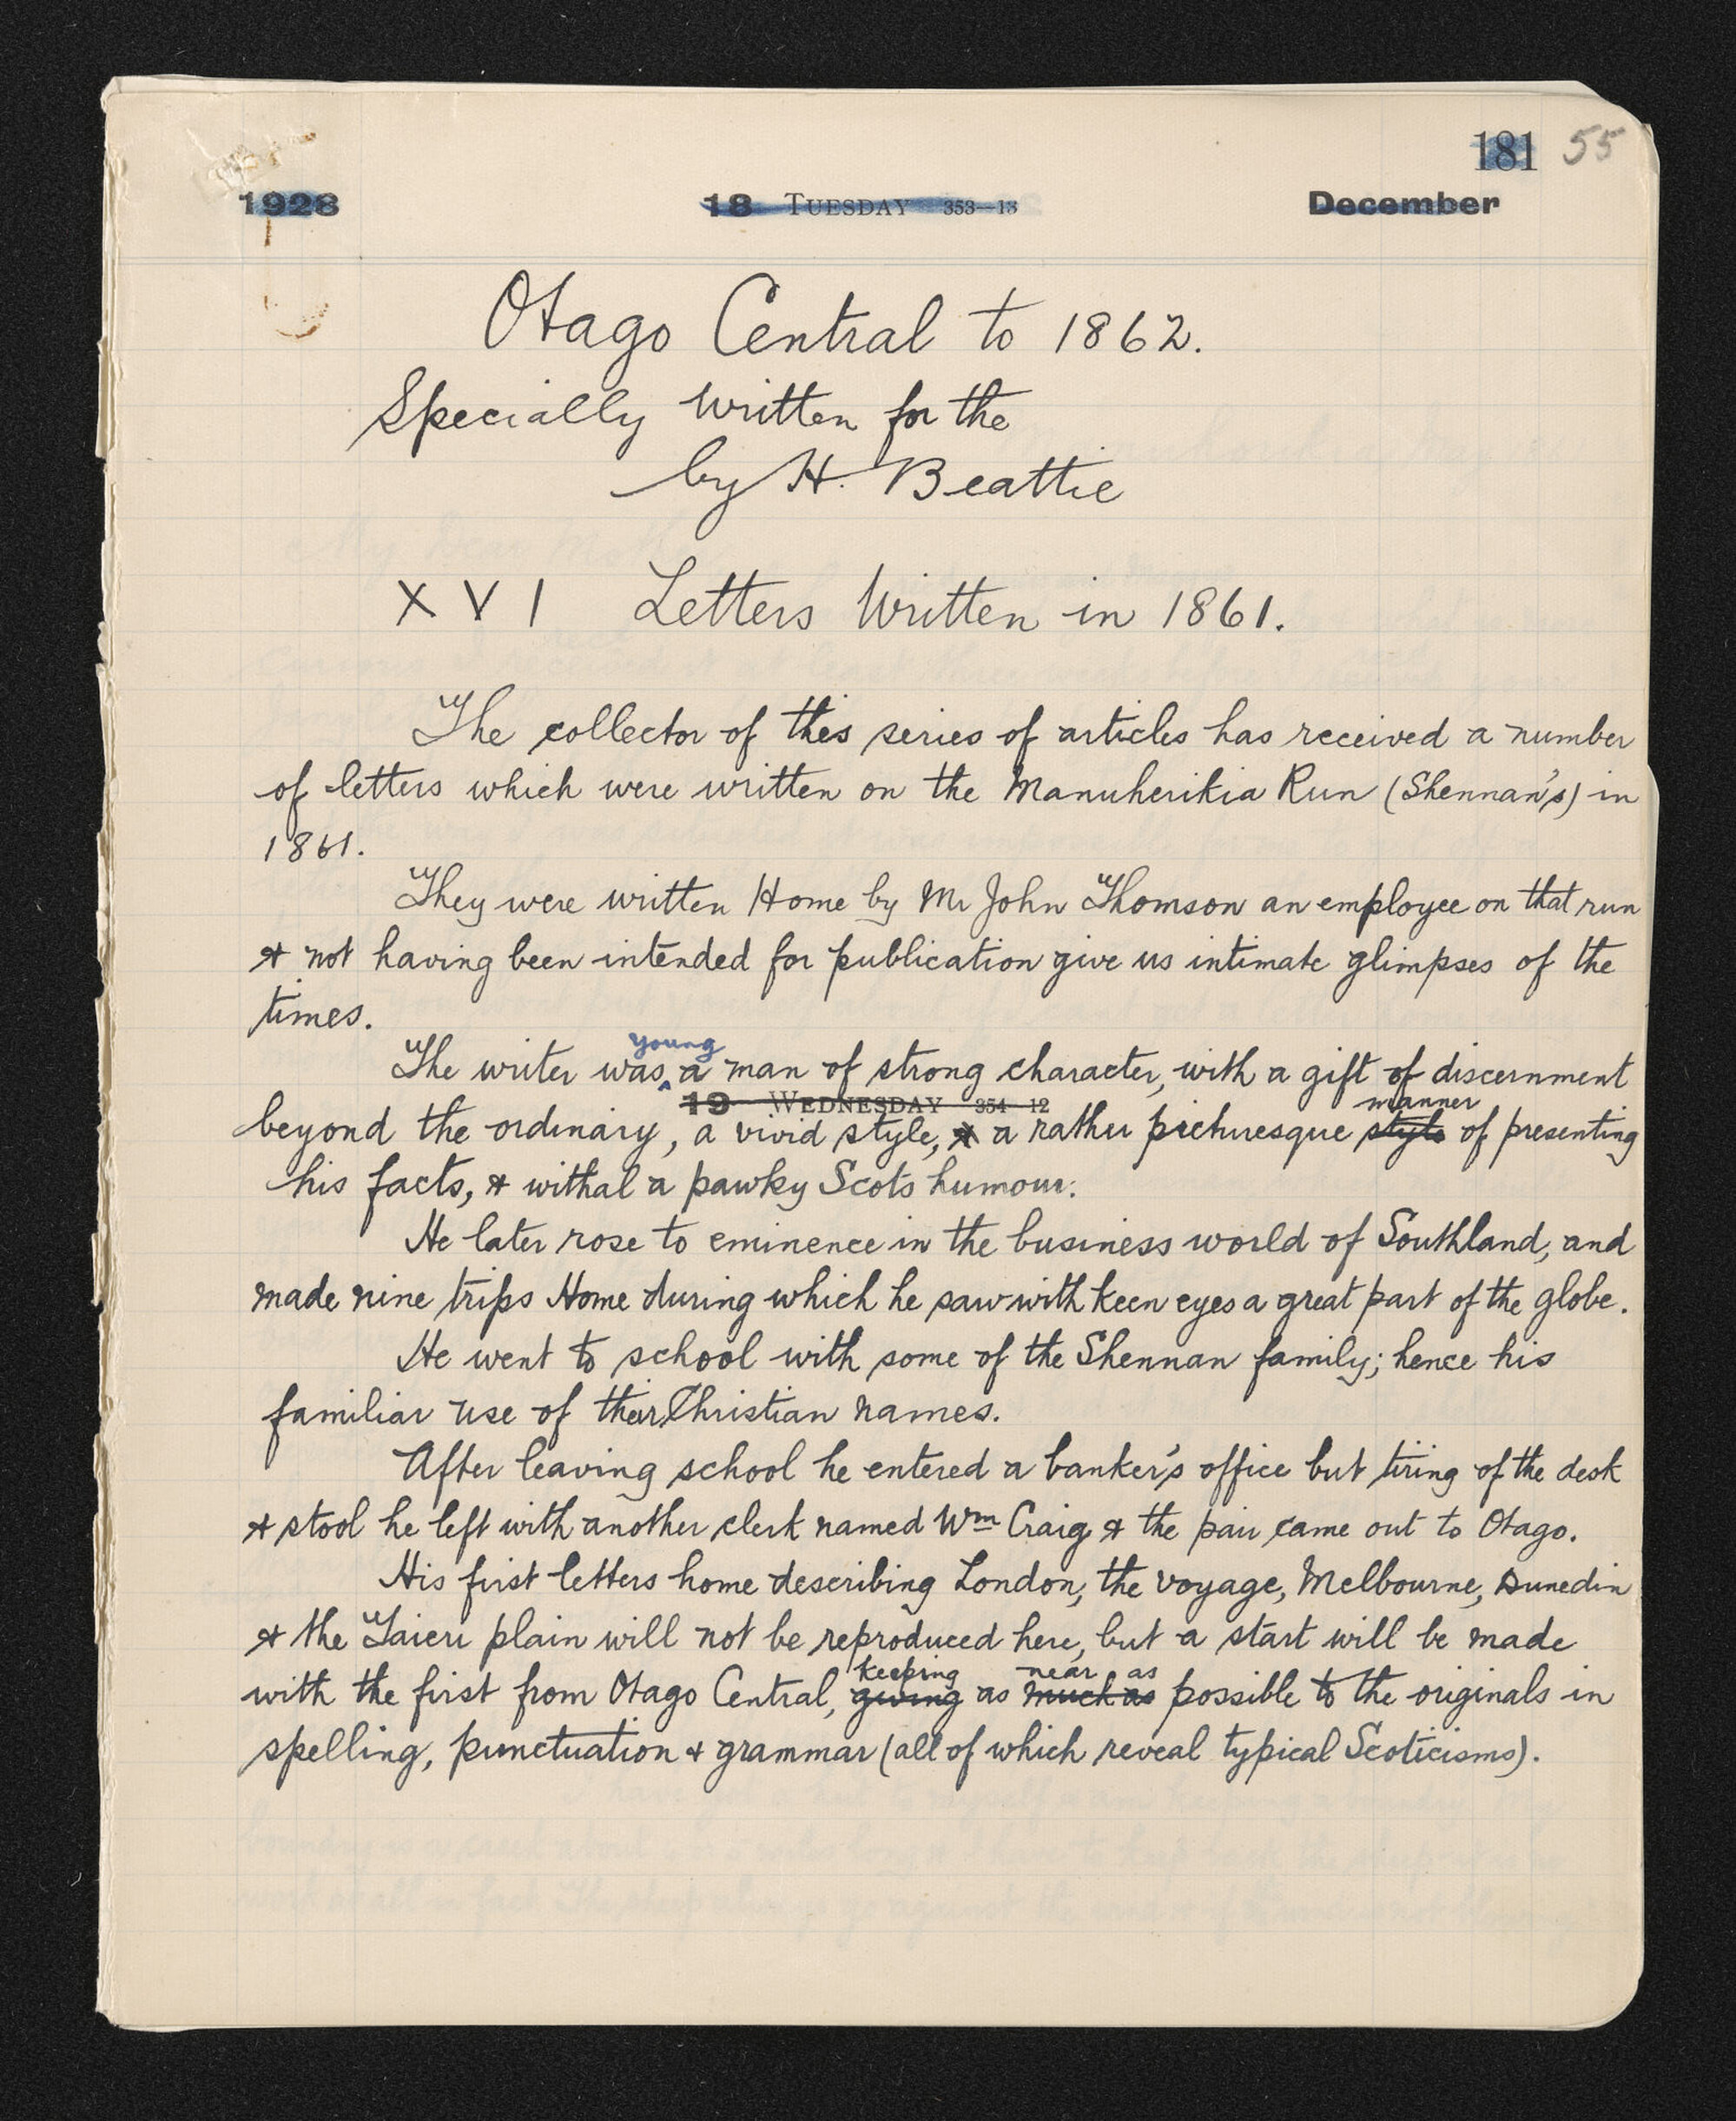 181 55
1928 18 TUESDAY 353—13 December
Otago Central to 1862.
Specially written for the
by H. Beattie
XVI Letters Written in 1861.
The collector of this series of articles has received a number
of letters which were written on the Manuherikia Run (Shennan's) in
1861.
They were written Home by Mr John Thomson an employee on that run
& not having been intended for publication give us intimate glimpses of the
times.
young
The writer was a man of strong character, with a gift of discernment
19 WEDNESDAY 354—12 manner
beyond the ordinary, a vivid style, & a rather picturesque style of presenting
his facts, & withal a pawky Scots humour.
He later rose to eminence in the business world of Southland, and
made nine trips Home during which he saw with keen eyes a great part of the globe.
He went to school with some of the Shennan family; hence his
familiar use of their Christian names.
After leaving school he entered a banker's office but tiring of the desk
& stool he left with another clerk named Wm Craig & the pair came out to Otago.
His first letters home describing London, the voyage, Melbourne, Dunedin
& the Taieri plain will not be reproduced here, but a start will be made
keeping near as
with the first from Otago Central, giving as much as possible to the originals in
spelling, punctuation & grammar (all of which reveal typical Scoticisms).